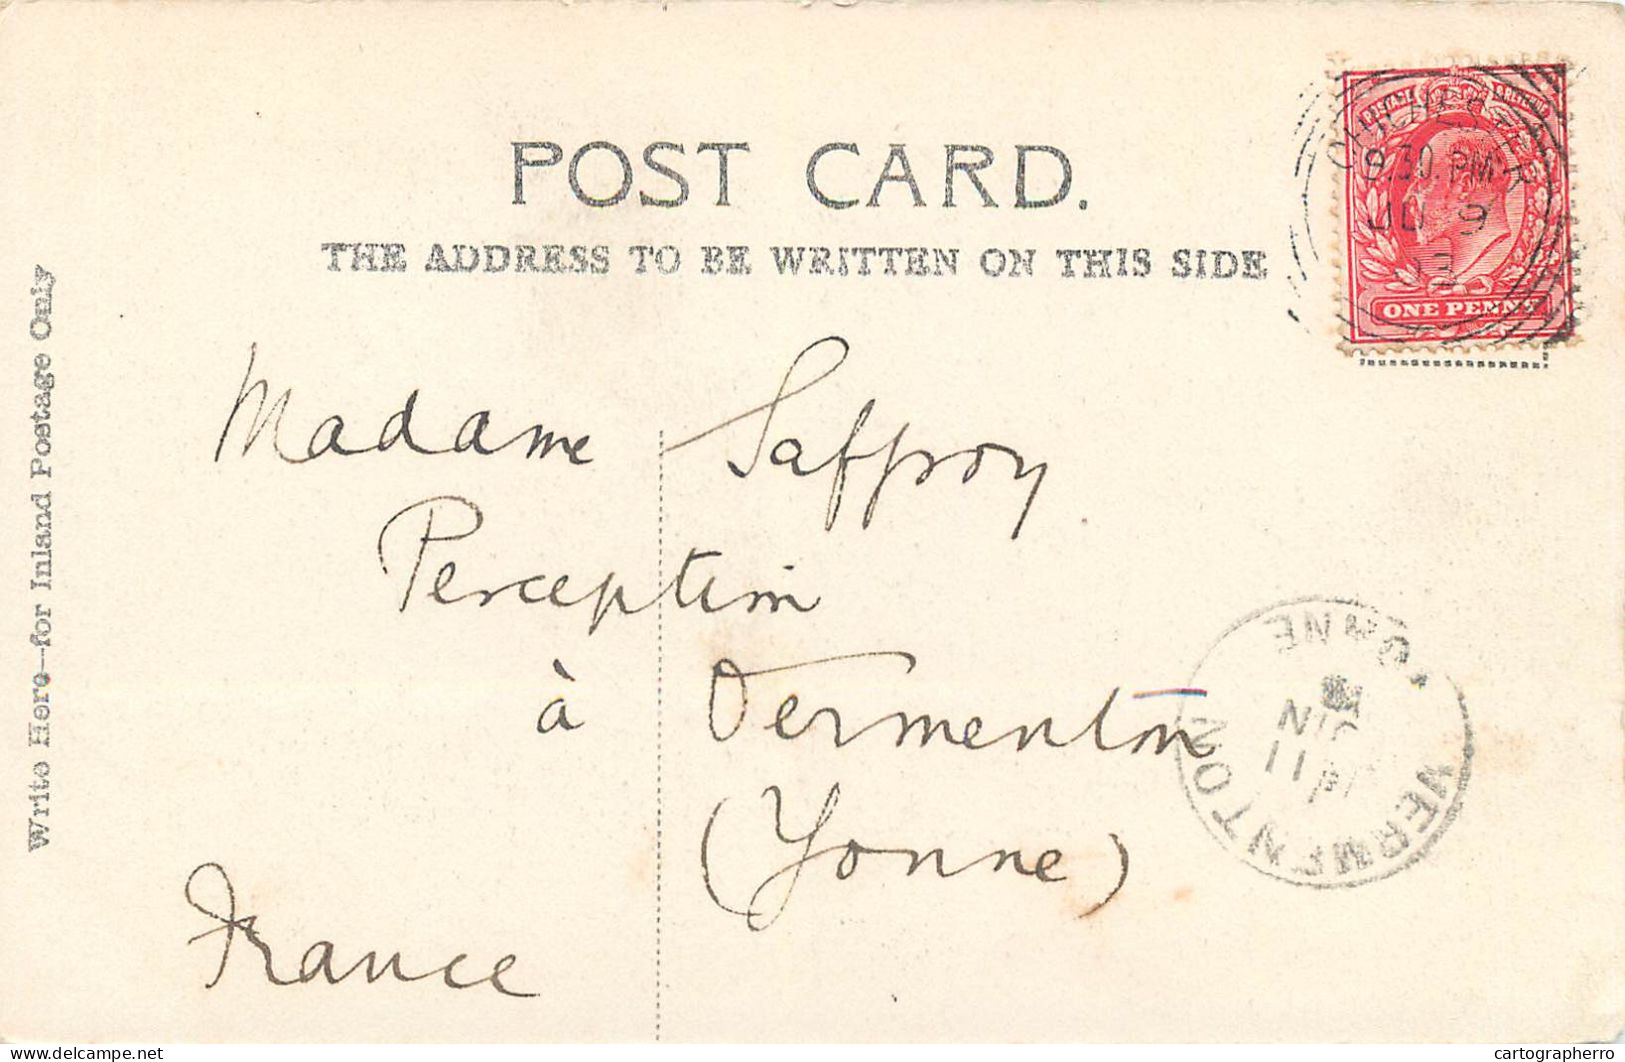 POST CARD.
THE ADDRESS TO BE WRITTEN ON THIS SIDE
Write Here—for Inland Postage Only
CHICHESTER
9.30.PM
JU 9
03
ONE PENNY
Madame Saffroy
Perception
à Vermenton
(Yonne)
France
YONNE
JUIN
11
VERMENTON
delcampe.net
cartographerro